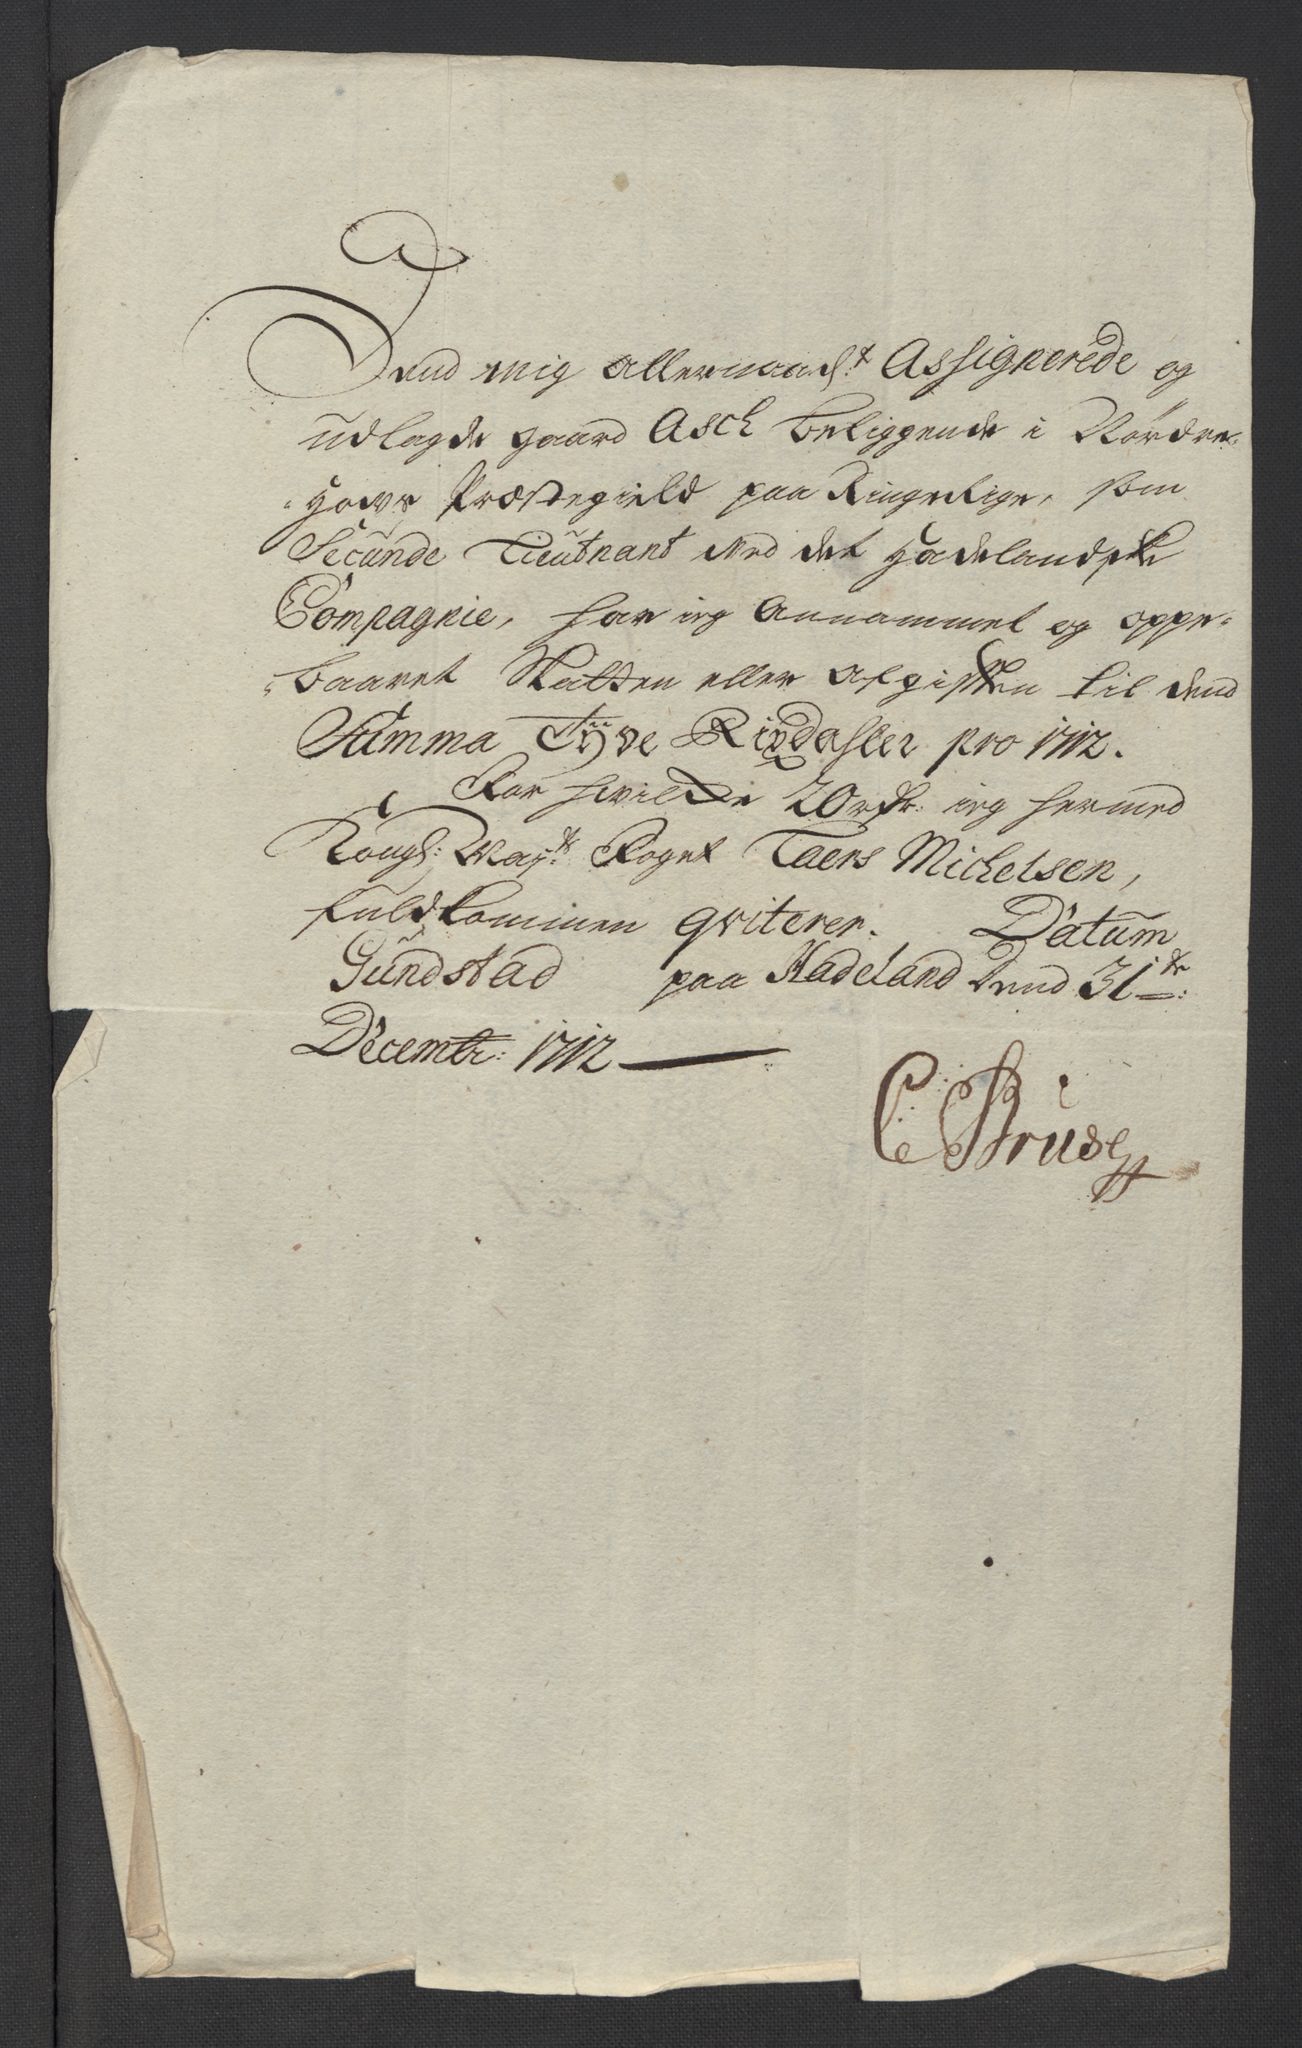 Dend mig allernaadst Assignerede og
udlagde gaard Asch beliggende i Nordre-
hows Præstegield paa Ringerige, som
Secunde Lieutnant ved det Hadelandske
Compagnie, har ieg Annammet og oppe-
baaret Skatten eller Afgiften til dend
Summa Tÿve Rixdahler pro 1712.
For hvilcke 20 rdr: ieg hermed
Kongl: May.tz Foget Laers Michelsen,
fuldkommen qviterer. Datum
Gundstad paa Hadeland dend 31te:
Decembr: 1712
C Bruse